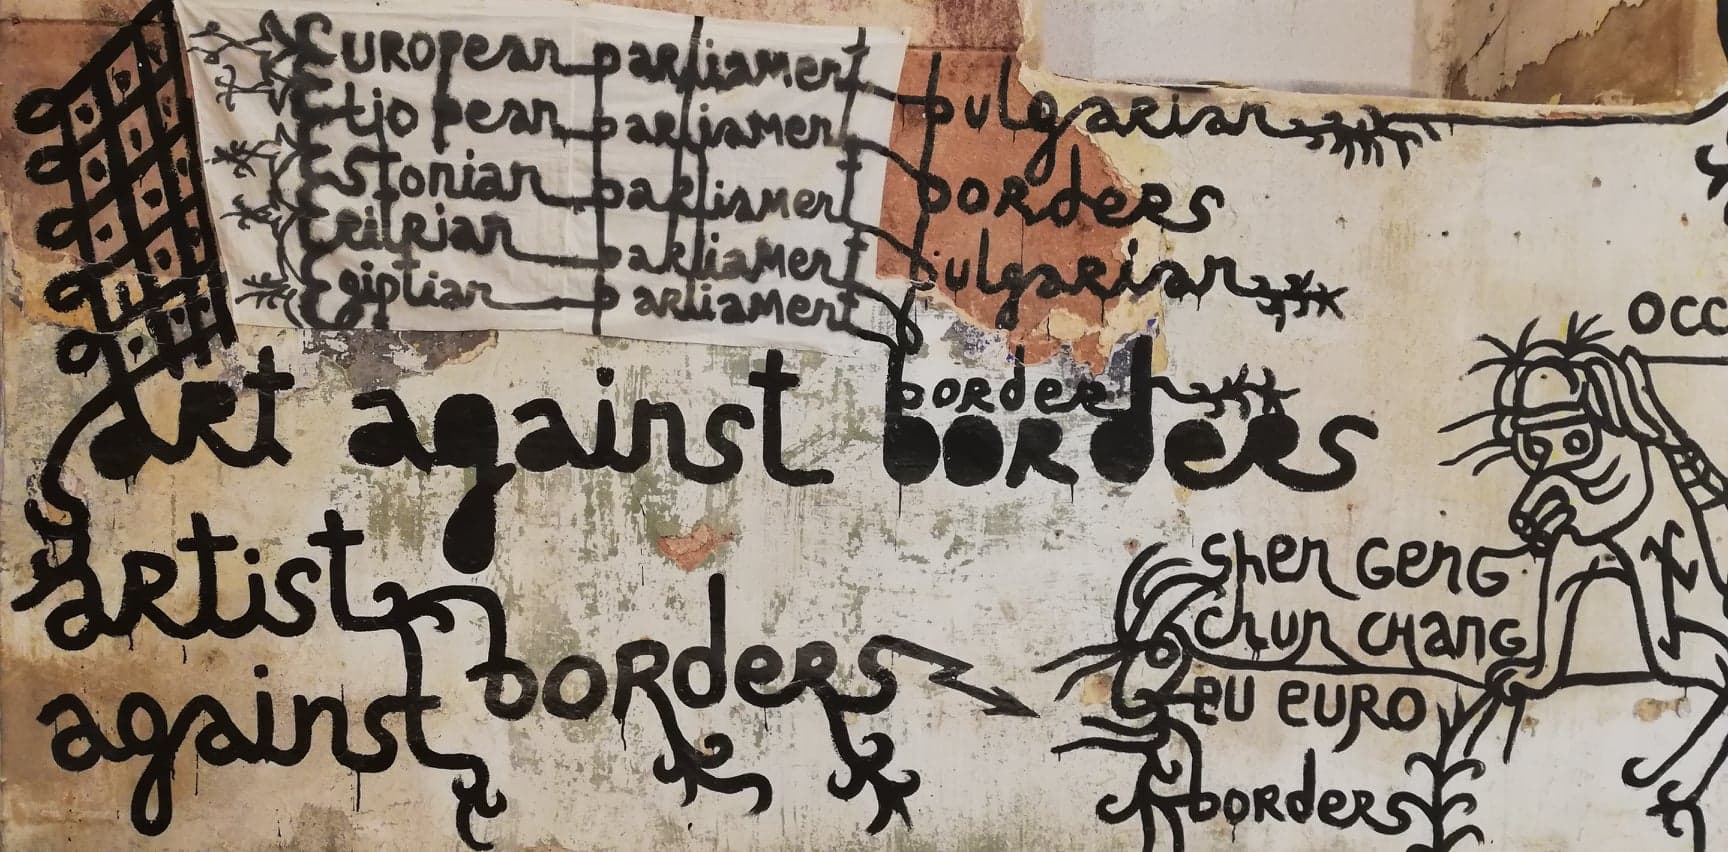 European parliament bulgarian
Etjopean parliament borders
Estonian parliament bulgarian
Eritrian parliament border
Egiptian parliament
art against borders
artist borders
against
OCC
shen GenG
chun CHanG
eU eURO
borders